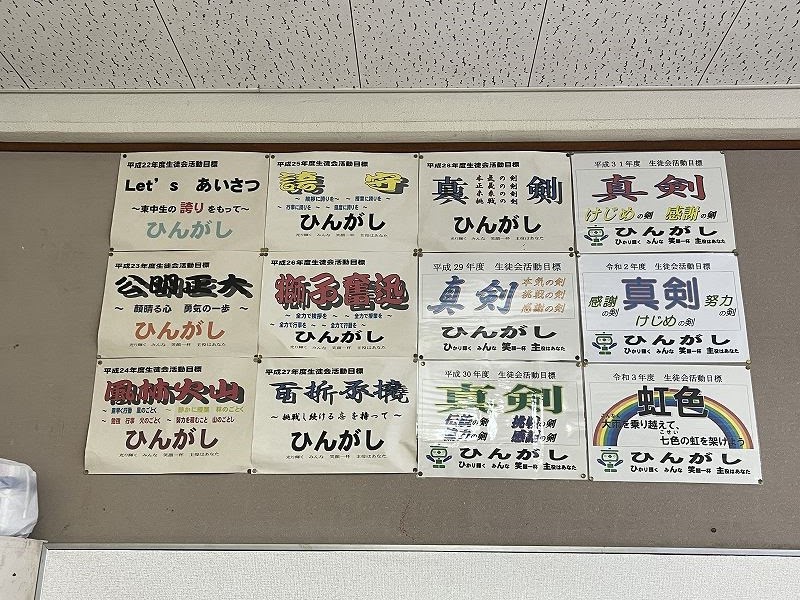 平成22年度生徒会活動目標
Let's あいさつ
～東中生の 誇り をもって～
ひんがし
平成23年度生徒会活動目標
公明正大
～ 顔晴る心 勇気の一歩 ～
ひんがし
光り輝く みんな 笑顔一杯 主役はあなた
平成24年度生徒会活動目標
風林火山
～ 素早く行動 風のごとく ～ 静かに授業 林のごとく
～ 勉強 行事 火のごとく ～ 努力を積むこと 山のごとし
ひんがし
光り輝く みんな 笑顔一杯 主役はあなた
平成25年度生徒会活動目標
誇
～ 挨拶に誇りを～ ～ 授業に誇りを ～
～ 行事に誇りを ～
ひんがし
光り輝く みんな 笑顔一杯 主役はあなた
平成26年度生徒会活動目標
獅子奮迅
～ 全力で挨拶を ～ ～ 全力で授業を ～
～ 全力で行事を ～ ～ 全力で行動を ～
ひんがし
光り輝く みんな 笑顔一杯 主役はあなた
平成27年度生徒会活動目標
百折不撓
～ 挑戦し続ける志を持って ～
ひんがし
光り輝く みんな 笑顔一杯 主役はあなた
平成28年度生徒会活動目標
真剣
本気の剣
正義の剣
未来の剣
挑戦の剣
ひんがし
光り輝く みんな 笑顔一杯 主役はあなた
平成29年度 生徒会活動目標
真剣
本気の剣
挑戦の剣
感謝の剣
ひんがし
ひかり輝く みんな 笑顔一杯 主役はあなた
平成30年度 生徒会活動目標
真剣
伝統の剣 挑戦の剣
協力の剣 感謝の剣
ひんがし
ひかり輝く みんな 笑顔一杯 主役はあなた
平成31年度 生徒会活動目標
真剣
けじめの剣 感謝の剣
ひんがし
ひかり輝く みんな 笑顔一杯 主役はあなた
令和2年度 生徒会活動目標
真剣
感謝の剣
努力の剣
けじめの剣
ひんがし
ひかり輝く みんな 笑顔一杯 主役はあなた
令和3年度 生徒会活動目標
虹色
を乗り越えて、
七色の虹を架けよう
ひんがし
ひかり輝く みんな 笑顔一杯 主役はあなた